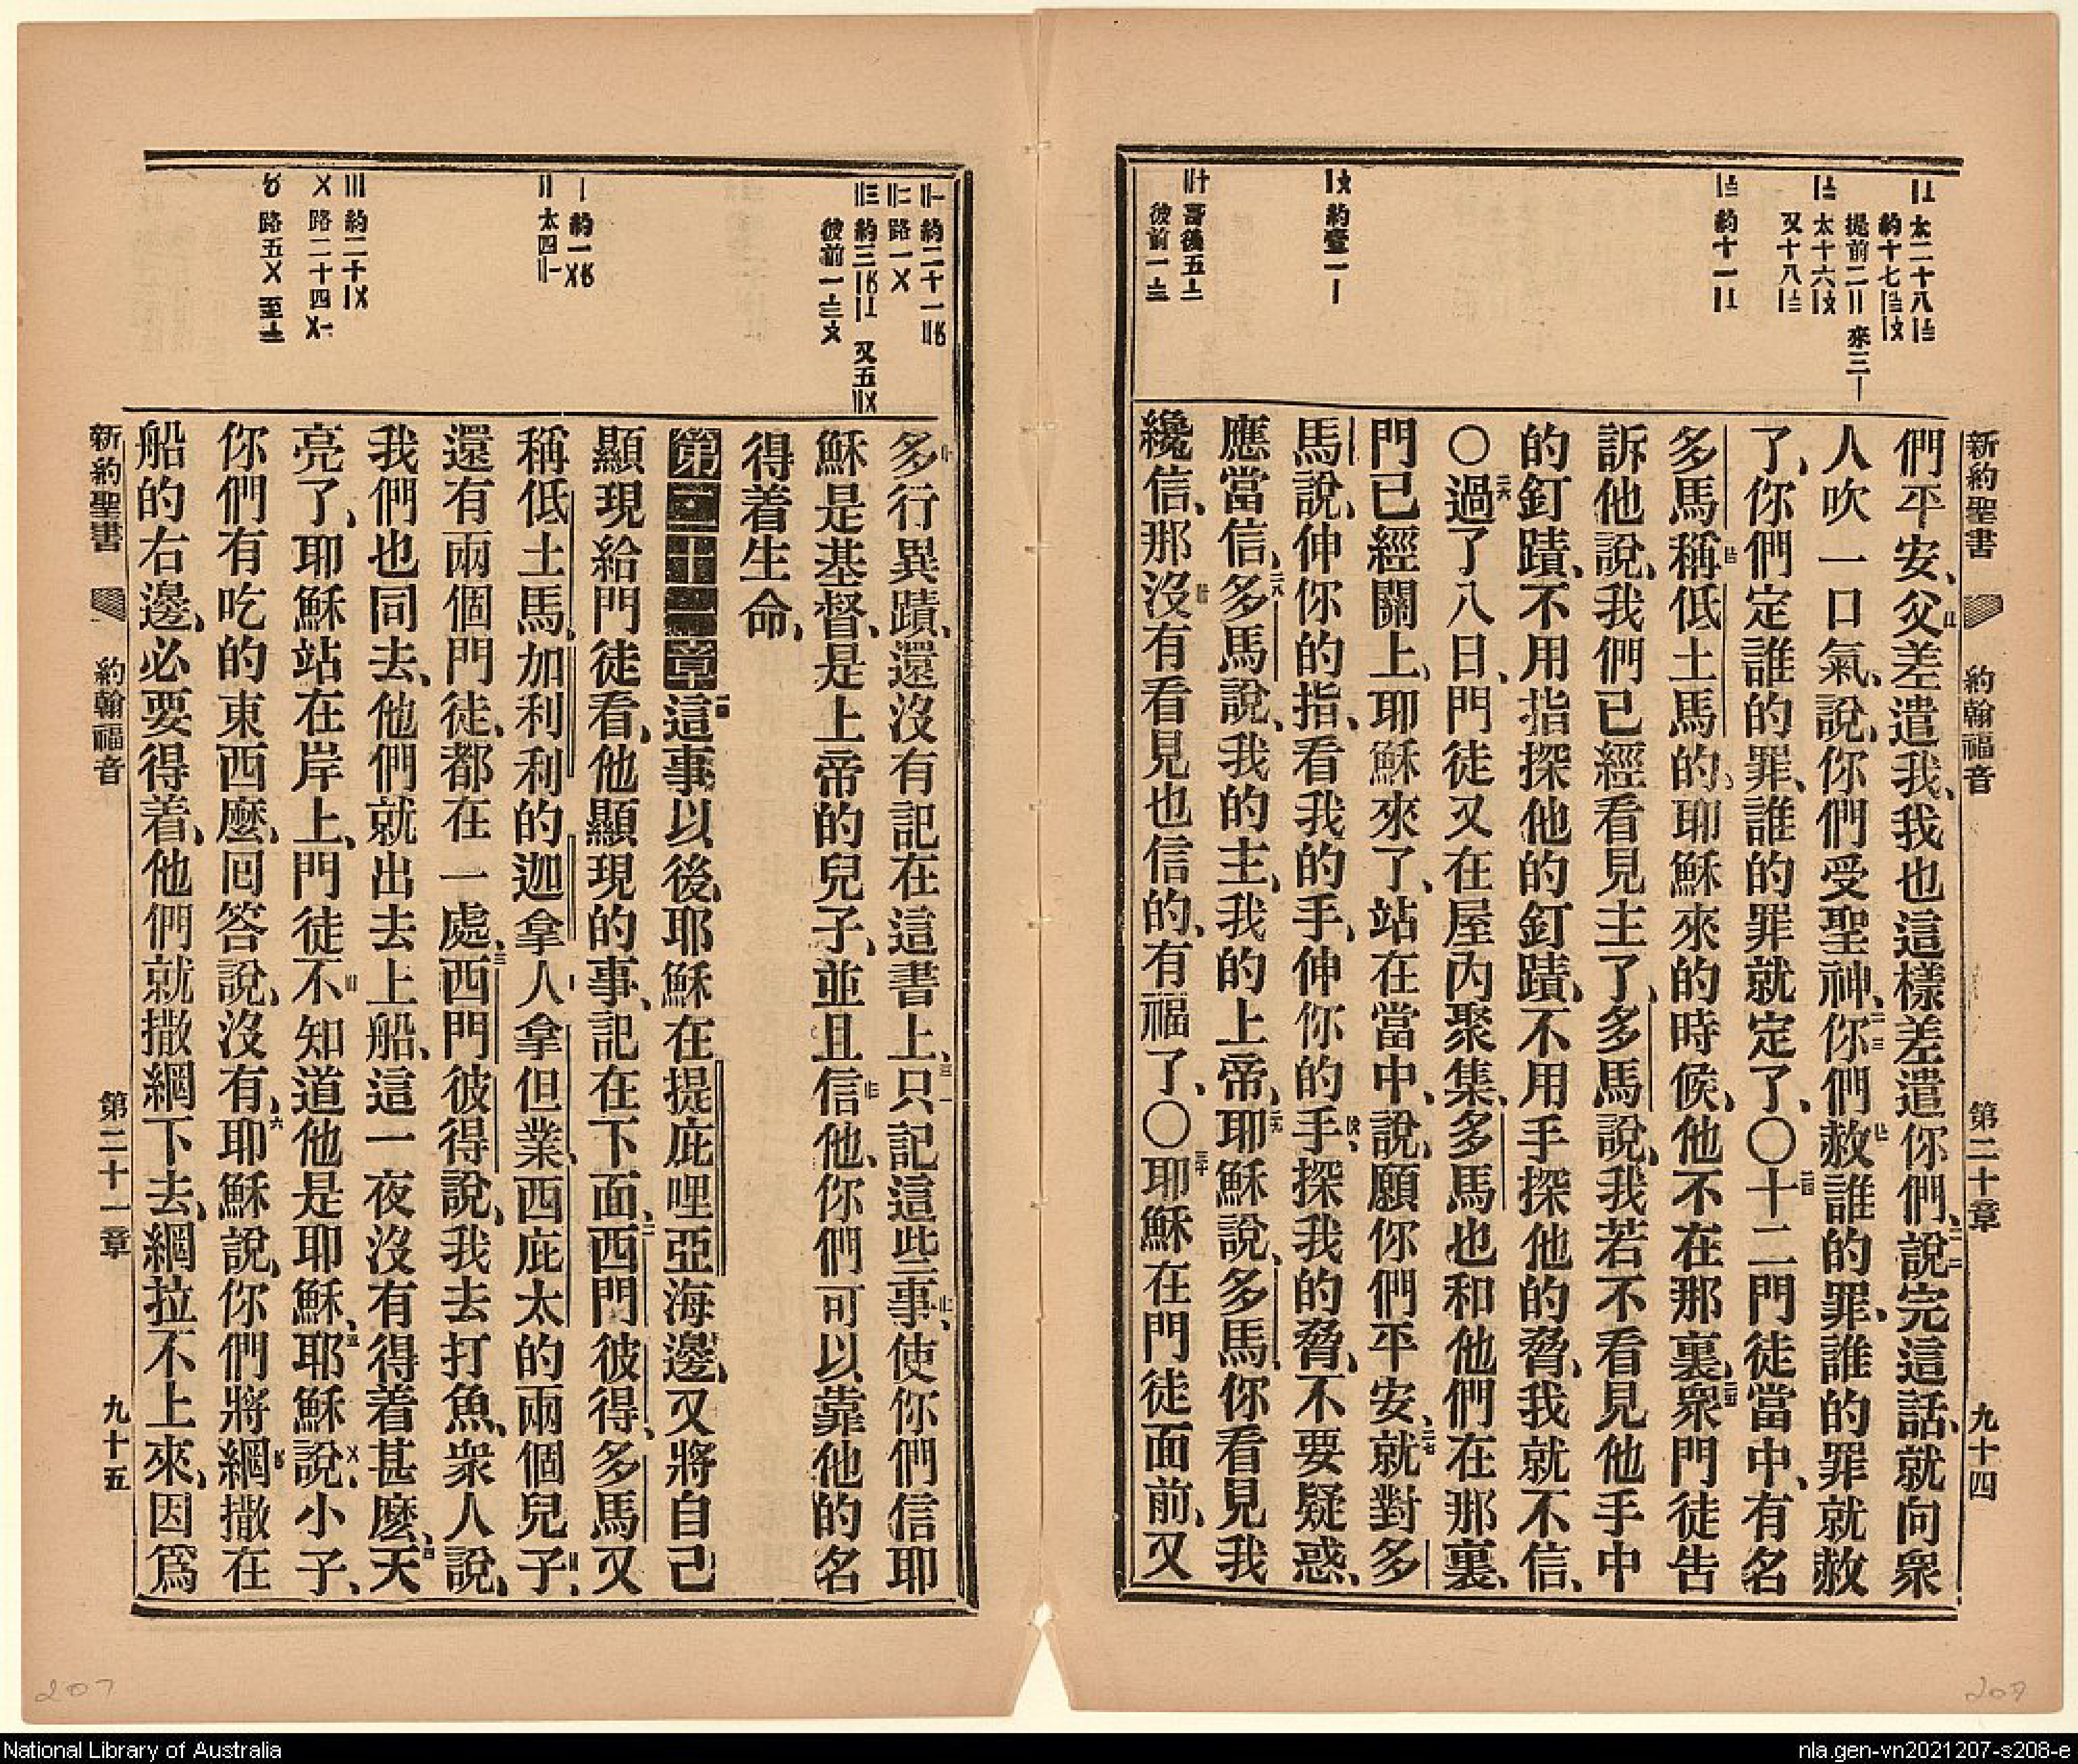 新約聖書 約翰福音 第二十章 九十四
們平安、父差遣我、我也這樣差遣你們、說完這話、就向衆
人吹一口氣、說、你們受聖神、你們赦誰的罪、誰的罪就赦
了、你們定誰的罪、誰的罪就定了、○十二門徒當中、有名
多馬稱低土馬的、耶穌來的時候、他不在那裏、衆門徒告
訴他說、我們已經看見主了、多馬說、我若不看見他手中
的釘蹟、不用指探他的釘蹟、不用手探他的脅、我就不信、
○過了八日、門徒又在屋內聚集、多馬也和他們在那裏、
門已經關上、耶穌來了、站在當中、說、願你們平安、就對多
馬說、伸你的指、看我的手、伸你的手、探我的脅、不要疑惑、
應當信、多馬說、我的主、我的上帝、耶穌說、多馬、你看見我
纔信、那沒有看見也信的、有福了、○耶穌在門徒面前、又
多行異蹟、還沒有記在這書上、只記這些事、使你們信耶
穌是基督、是上帝的兒子、並且信他、你們可以靠他的名
得着生命、
第二十一章 這事以後、耶穌在提庇哩亞海邊、又將自己
顯現給門徒看、他顯現的事、記在下面、西門彼得、多馬又
稱低土馬、加利利的迦拿人拿但業、西庇太的兩個兒子、
還有兩個門徒、都在一處、西門彼得說、我去打魚、衆人說、
我們也同去、他們就出去上船、這一夜沒有得着甚麽、天
亮了、耶穌站在岸上、門徒不知道他是耶穌、耶穌說、小子、
你們有吃的東西麽、囘答說、沒有、耶穌說、你們將網撒在
船的右邊、必要得着、他們就撒網下去、網拉不上來、因爲
新約聖書 約翰福音 第二十一章 九十五
207
207
National Library of Australia
nla.gen-vn2021207-s208-e